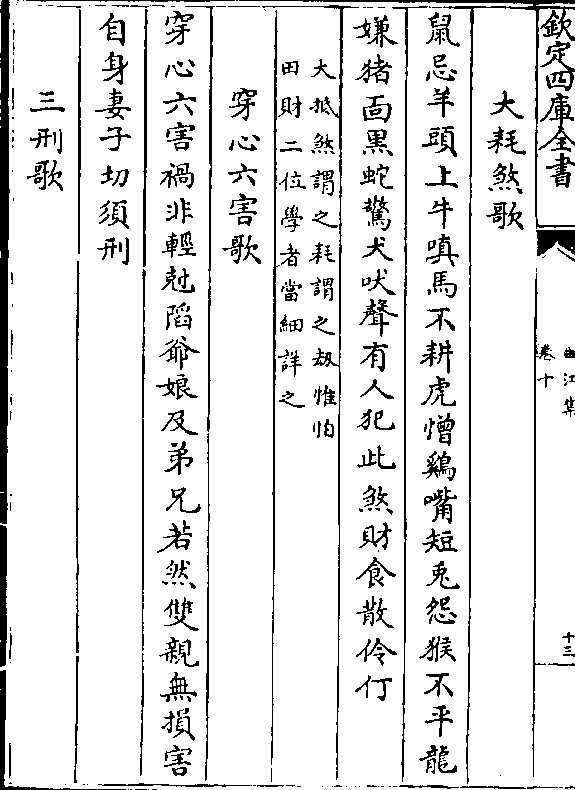 欽定四庫全書
曲江集
卷十
十三
大耗煞歌
鼠忌羊頭上牛嗔馬不耕虎憎鷄嘴短兎怨猴不平龍
嫌猪面黒蛇驚犬吠聲有人犯此煞財食散伶仃
大抵煞謂之耗謂之刼惟怕
田財二位學者當細詳之
穿心六害歌
穿心六害禍非輕尅䧟爺娘及弟兄若然雙親無損害
自身妻子切須刑
三刑歌